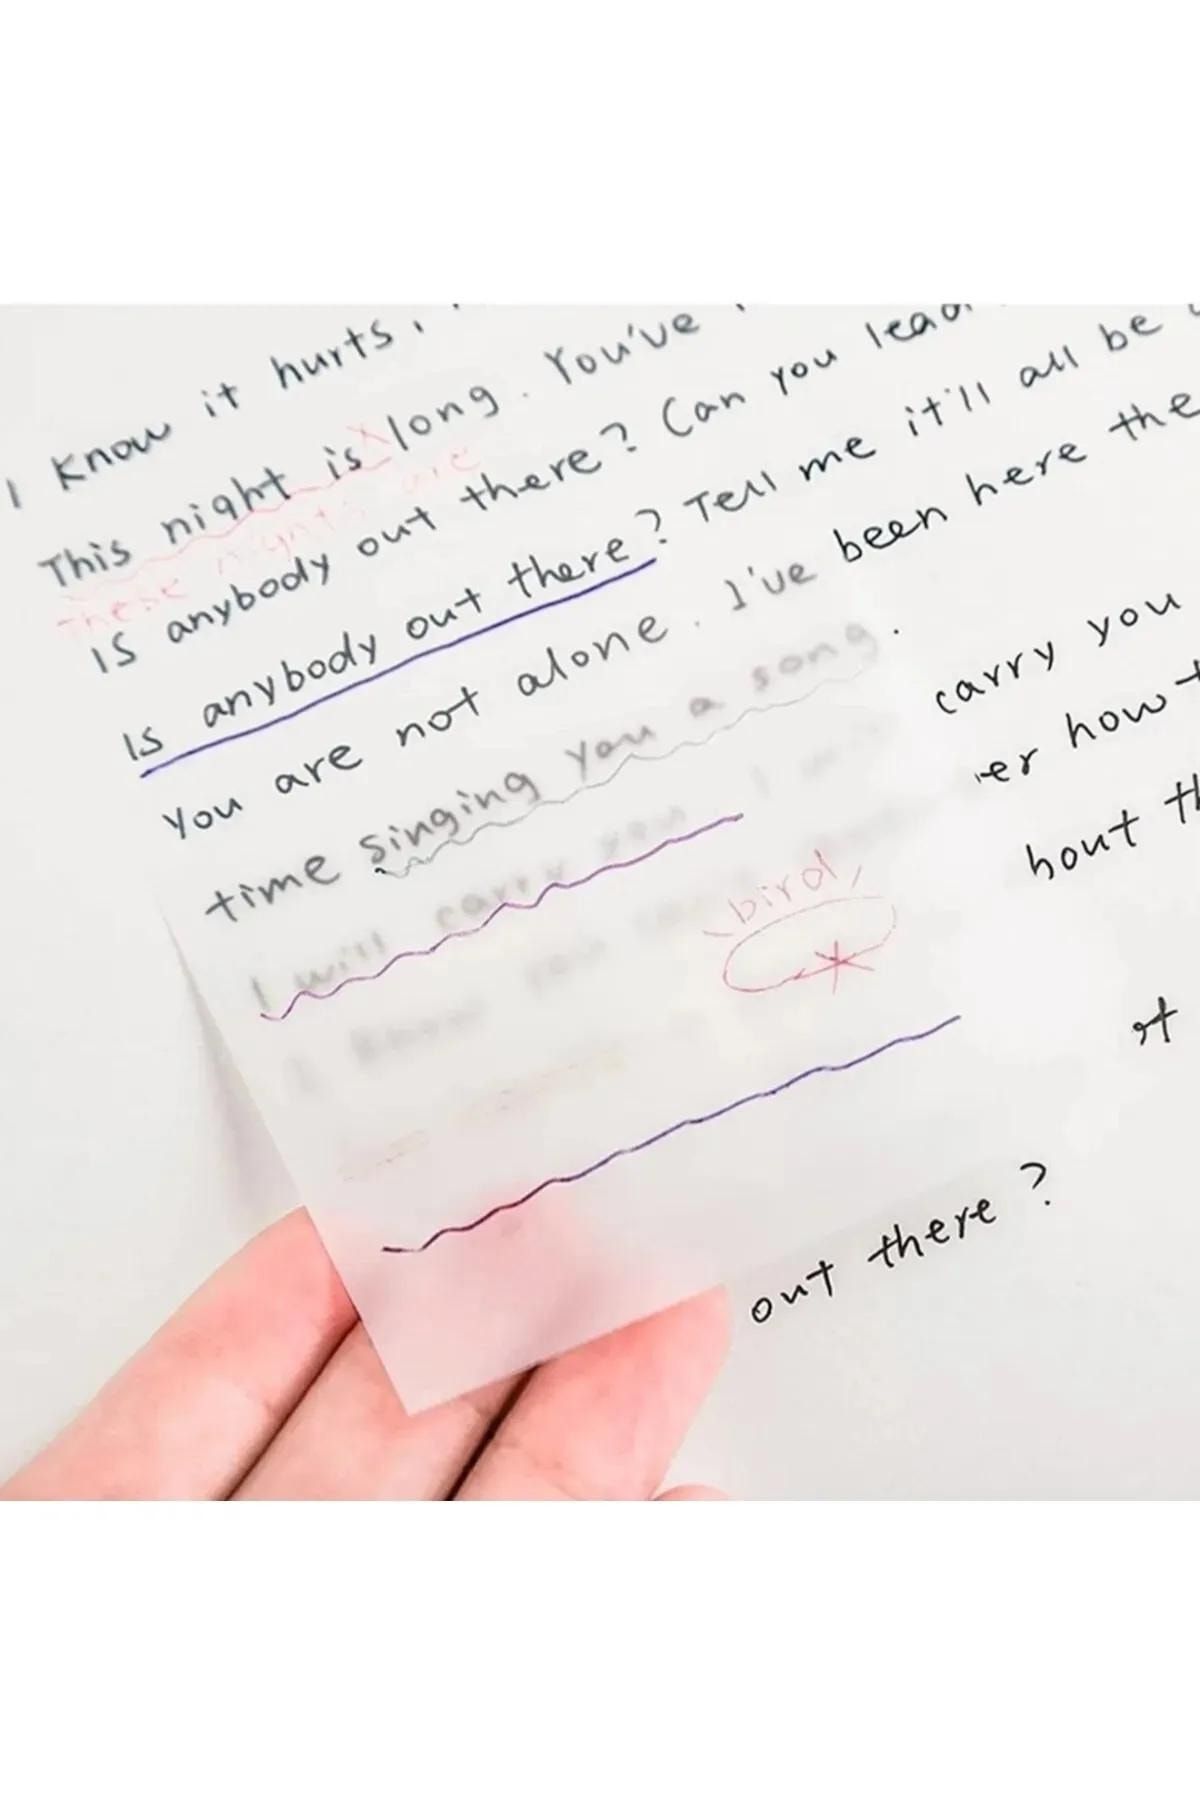 I know it hurts,
This night is long. You've
these nights are
IS anybody out there? Can you lead
Is anybody out there? Tell me it'll all be
You are not alone. I've been here the
time singing you a song.
I will carry you I will carry you
I know you
bird
er how t
bout th
out there?